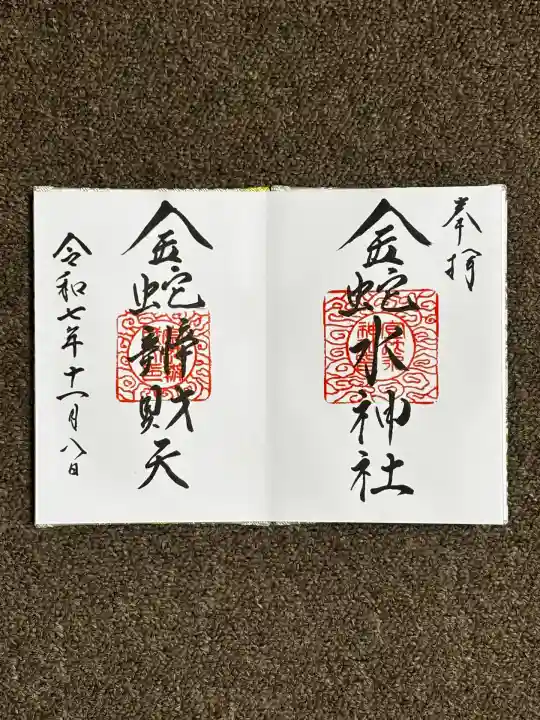 奉拝
金蛇水神社
金蛇辨財天
令和七年十一月八日